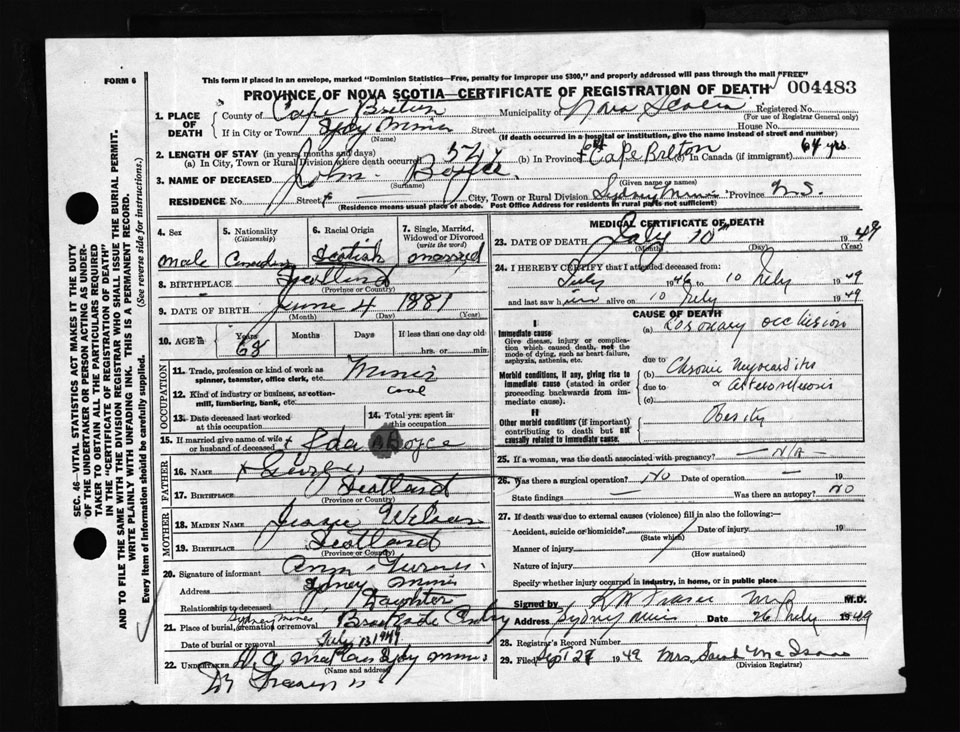 FORM 6
This form if placed in an envelope, marked "Dominion Statistics—Free, penalty for improper use $300," and properly addressed will pass through the mail "FREE"
PROVINCE OF NOVA SCOTIA—CERTIFICATE OF REGISTRATION OF DEATH 004483
SEC. 46—VITAL STATISTICS ACT MAKES IT THE DUTY
OF THE UNDERTAKER OR PERSON ACTING AS UNDER-
TAKER TO OBTAIN ALL THE PARTICULARS REQUIRED
IN THE "CERTIFICATE OF REGISTRATION OF DEATH"
AND TO FILE THE SAME WITH THE DIVISION REGISTRAR WHO SHALL ISSUE THE BURIAL PERMIT.
WRITE PLAINLY WITH UNFADING INK. THIS IS A PERMANENT RECORD.
Every item of information should be carefully supplied. (See reverse side for instructions.)
1. PLACE OF DEATH County of Cape Breton Municipality of Nova Scotia Registered No.
(For use of Registrar General only)
If in City or Town Sydney Mines Street House No.
(Name) (If death occurred in a hospital or institution, give the name instead of street and number)
2. LENGTH OF STAY (in years, months and days)
(a) In City, Town or Rural Division where death occurred (b) In Province Cape Breton (c) In Canada (if immigrant) 64 yrs.
3. NAME OF DECEASED John Boyce
(Surname) (Given name or names)
RESIDENCE No. Street City, Town or Rural Division Sydney Mines Province N.S.
(Residence means usual place of abode. Post Office Address for residents in rural parts not sufficient)
4. Sex male
5. Nationality (Citizenship) Canadian
6. Racial Origin Scotish
7. Single, Married, Widowed or Divorced (write the word) married
8. BIRTHPLACE Scotland
(Province or Country)
9. DATE OF BIRTH June 4 1881
(Month) (Day) (Year)
10. AGE in Years 68 Months Days If less than one day hrs. or min.
OCCUPATION
11. Trade, profession or kind of work as spinner, teamster, office clerk, etc. Miner
12. Kind of industry or business, as cotton-mill, lumbering, bank, etc. Coal
13. Date deceased last worked at this occupation
14. Total yrs. spent in this occupation
15. If married give name of wife or husband of deceased Ida Boyce
FATHER
16. NAME
17. BIRTHPLACE Scotland
(Province or Country)
MOTHER
18. MAIDEN NAME Jessie Wilson
19. BIRTHPLACE Scotland
(Province or Country)
20. Signature of informant
Address Sydney Mines
Relationship to deceased Daughter
21. Place of burial, cremation or removal Sydney Mines
Date of burial or removal July 13 1949
22. UNDERTAKER
(Name and address)
MEDICAL CERTIFICATE OF DEATH
23. DATE OF DEATH July 10th 1949
(Month) (Day) (Year)
24. I HEREBY CERTIFY that I attended deceased from:
July 1946 to 10 July 1949
and last saw him alive on 10 July 1949
CAUSE OF DEATH
I
Immediate cause
Give disease, injury or complication which caused death, not the mode of dying, such as heart failure, asphyxia, asthenia, etc.
(a) Coronary occlusion
Morbid conditions, if any, giving rise to immediate cause (stated in order proceeding backwards from immediate cause).
due to
(b) Chronic myocarditis
due to & arteriosclerosis
(c)
II
Other morbid conditions (if important) contributing to death but not causally related to immediate cause.
Obesity
25. If a woman, was the death associated with pregnancy? — N/A —
26. Was there a surgical operation? NO Date of operation — 19
State findings — Was there an autopsy? NO
27. If death was due to external causes (violence) fill in also the following:
Accident, suicide or homicide? Date of injury 19
(State which)
Manner of injury
(How sustained)
Nature of injury
Specify whether injury occurred in industry, in home, or in public place
Signed by M.D.
Address Sydney Mines Date 26 July 1949
28. Registrar's Record Number
29. Filed Sept 27 1949 Mrs. Sarah McIsaac
(Division Registrar)